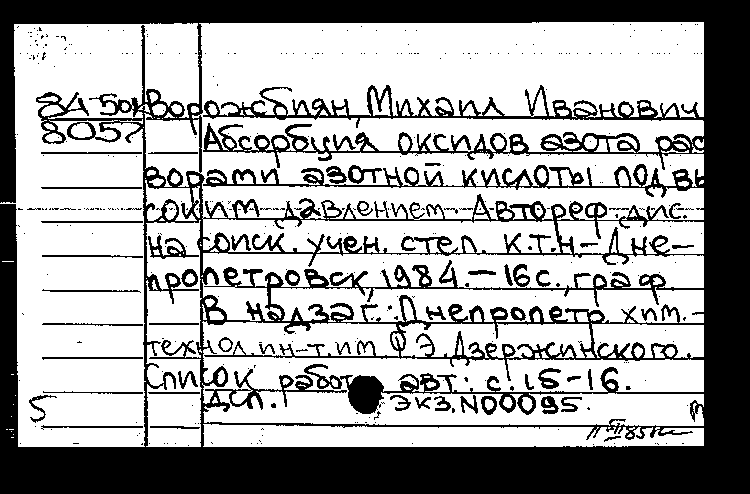 Ворожбиян, Михаил Иванович
8057
Абсорбция оксидов азота рас
ворами азотной кислоты под вы
соким давлением. Автореф. дис.
на соиск. учен. степ. к.т.н.-Дне-
пропетровск, 1984.-16с., граф.
В надзаг.: Днепропетр. хим.-
технол. ин-т. им Ф.Э. Дзержинского.
Список работ авт.: с. 15-16.
ДСП. ЭКЗ. N00095.
5